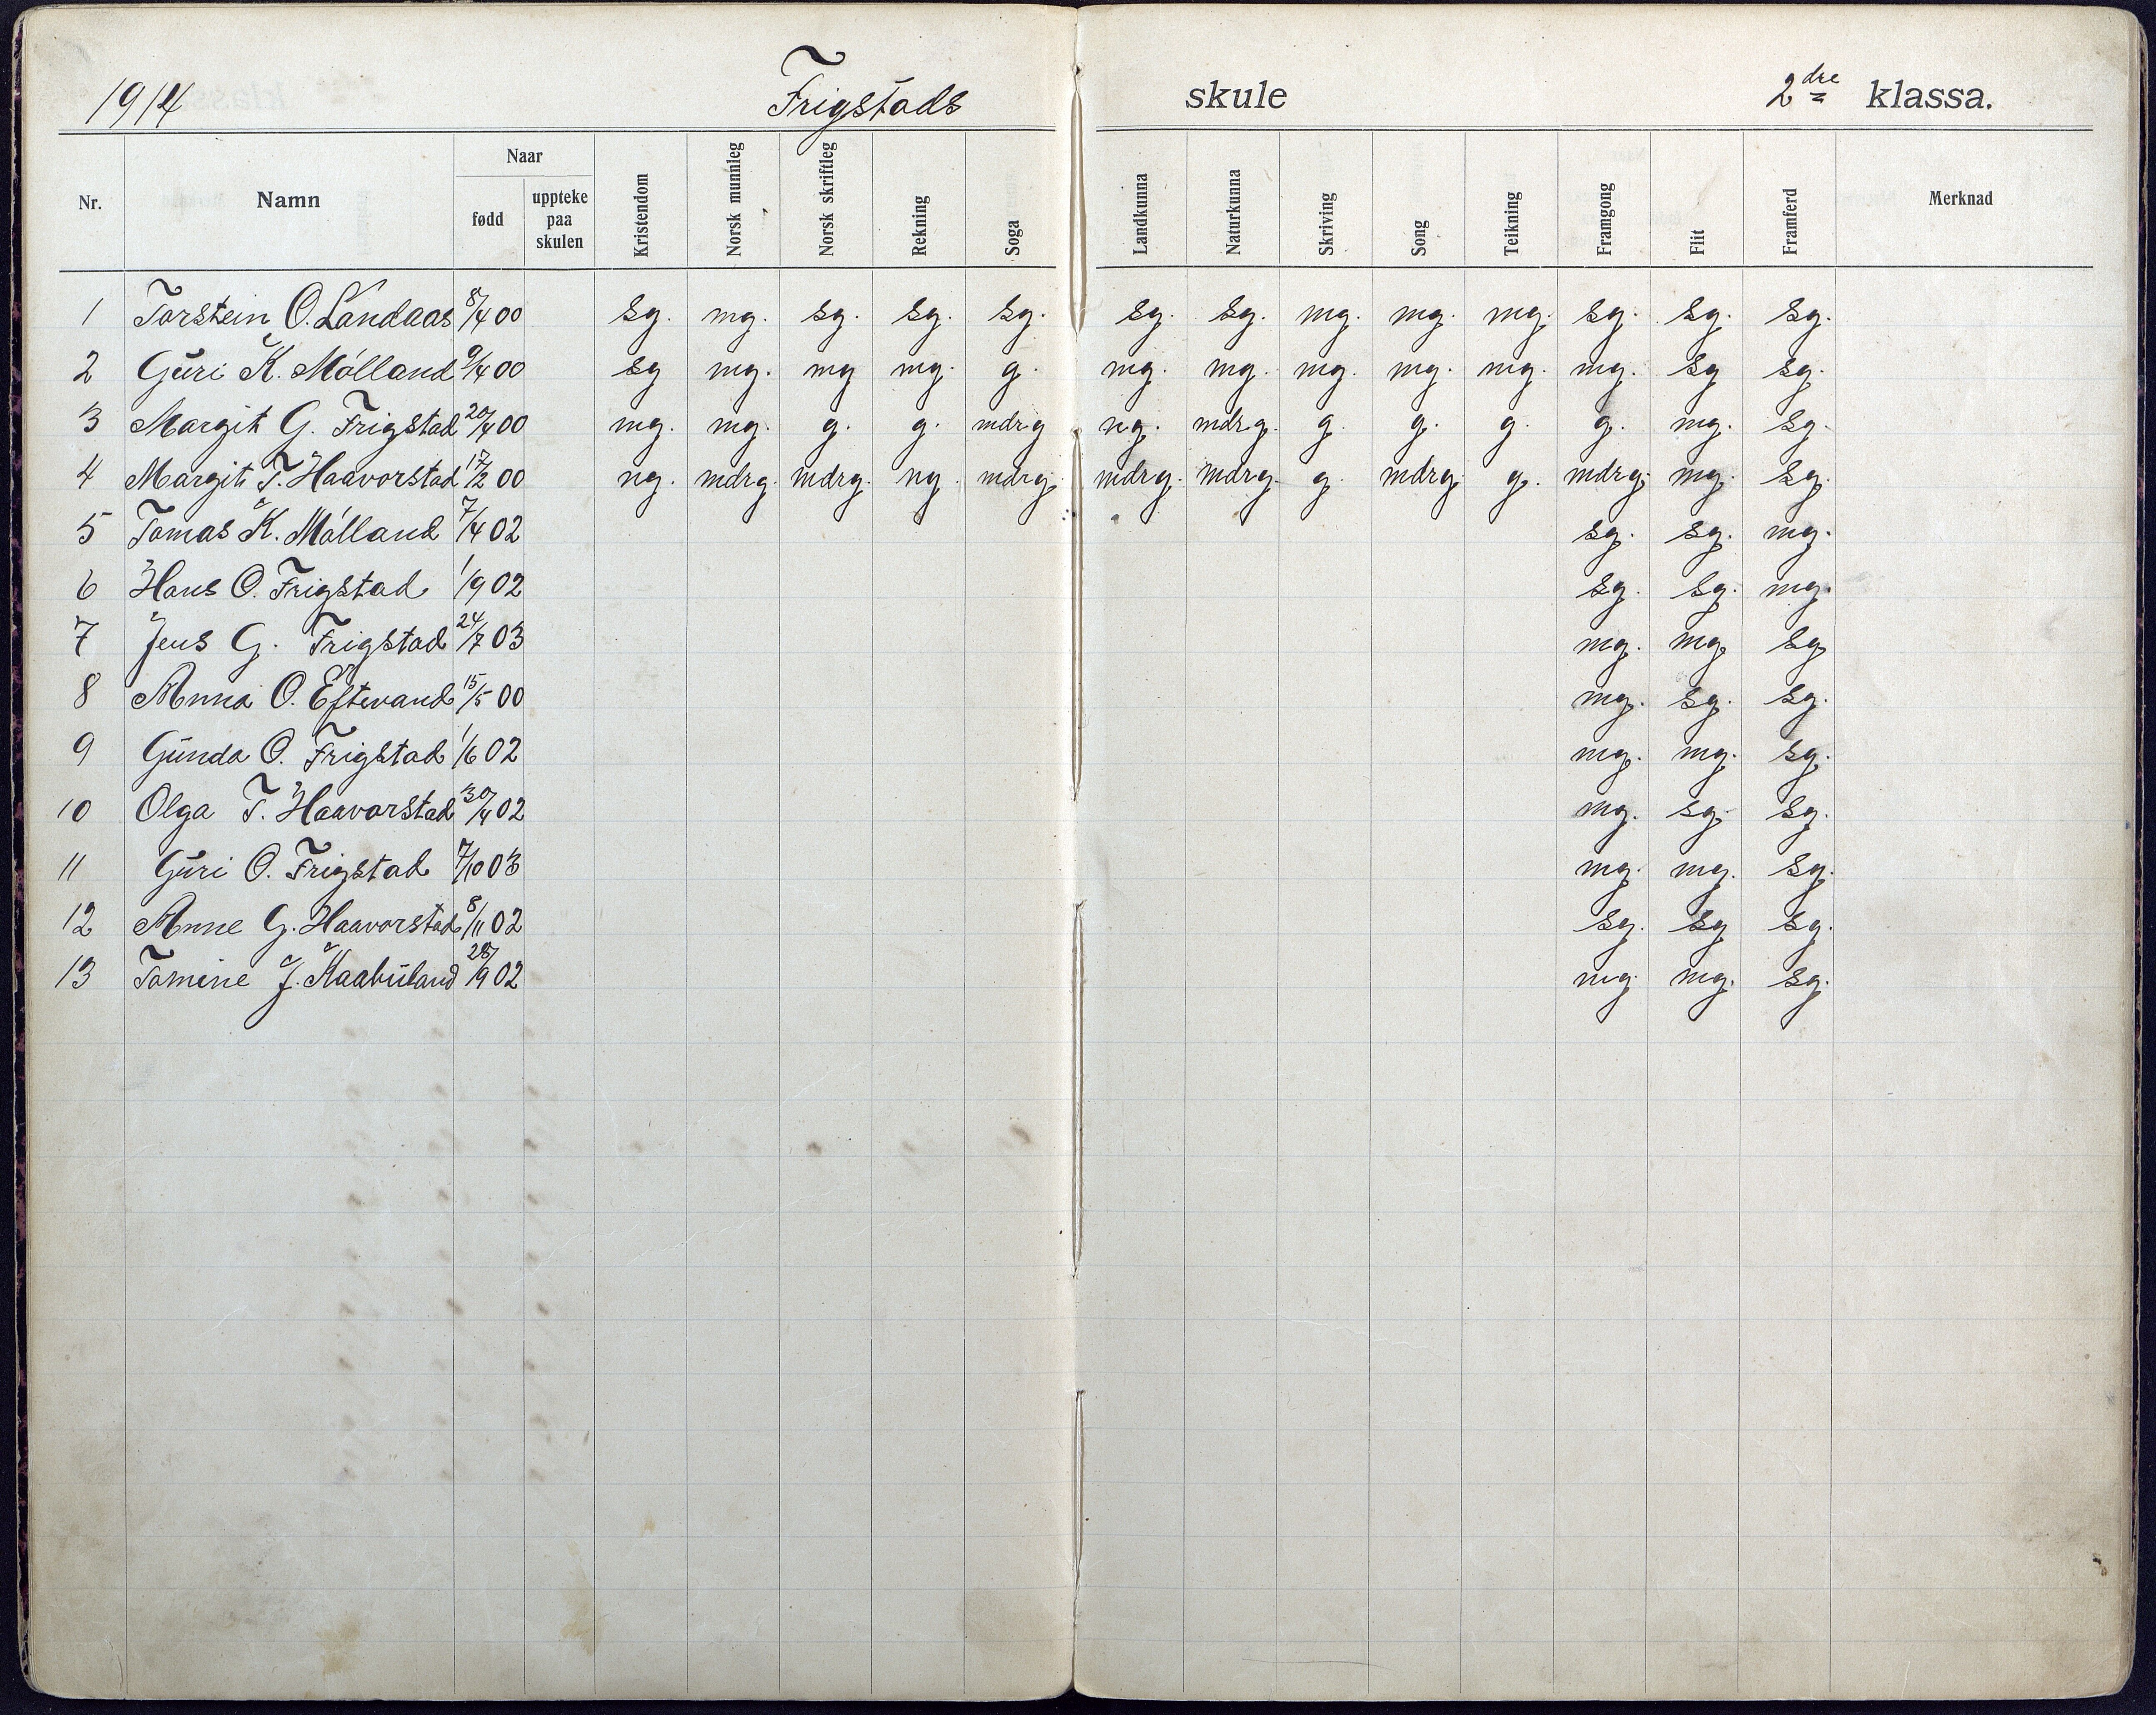 1914 Frigstads skule 2dre klassa.
Nr. Namn Naar fødd uppteke paa skulen Kristendom Norsk munnleg Norsk skriftleg Rekning Soga Landkunna Naturkunna Skriving Song Teikning Framgong Flit Framferd Merknad
1 Torstein O. Landaas 8/4 00 sg. mg. sg. sg. sg. sg. sg. mg. mg. mg. sg. sg. sg.
2 Guri K. Mólland 9/4 00 sg mg. mg mg. g. mg. mg. mg. mg. mg. mg. sg sg.
3 Margit G. Frigstad 20/4 00 mg. mg. g. g. mdrg ng. mdrg. g. g. g. g. mg. sg.
4 Margit T. Haavorstad 17/2 00 ng. mdrg. mdrg. ng. mdrg. mdrg. mdrg. g. mdrg. g. mdrg. mg. sg.
5 Tomas K. Mólland 7/4 02 sg. sg. mg.
6 Hans O. Frigstad 1/9 02 sg. sg. mg.
7 Jens G. Frigstad 24/7 03 mg. mg. sg
8 Anna O. Eftevand 15/5 00 mg. sg. sg.
9 Gunda O. Frigstad 1/6 02 mg. mg. sg.
10 Olga T. Haavorstad 30/4 02 mg. sg. sg.
11 Guri O. Frigstad 7/10 03 mg. mg. sg.
12 Anne G. Haavorstad 8/11 02 sg. sg sg.
13 Tomine J. Kaabuland 28/9 02 mg. mg. sg.